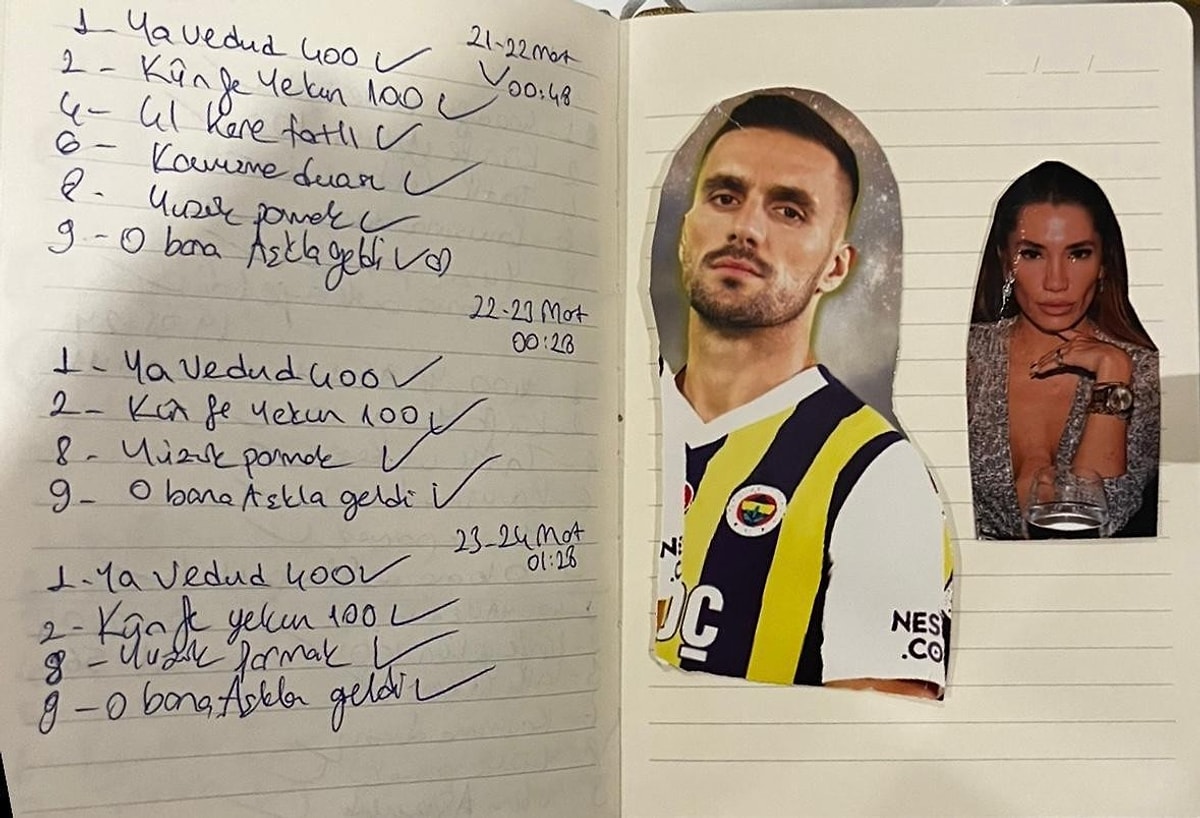 1- Ya Vedud 400 ✓
21-22 Mart
✓ 00:48
2- Kûn fe Yekun 100 ✓
4- 41 kere fatlı ✓
6- Kavuşme duası ✓
8- Yüzük parmak ✓
9- O bana Aşkla geldi ✓
22-23 Mart
00:28
1- Ya Vedud 400 ✓
2- Kûn fe Yekun 100 ✓
8- Yüzük parmak ✓
9- O bana Aşkla geldi ✓
23-24 Mart
01:28
1- Ya Vedud 400 ✓
2- Kûn fe yekun 100 ✓
8- Yüzük parmak ✓
9- O bana Aşkla geldi ✓
NES
.CO